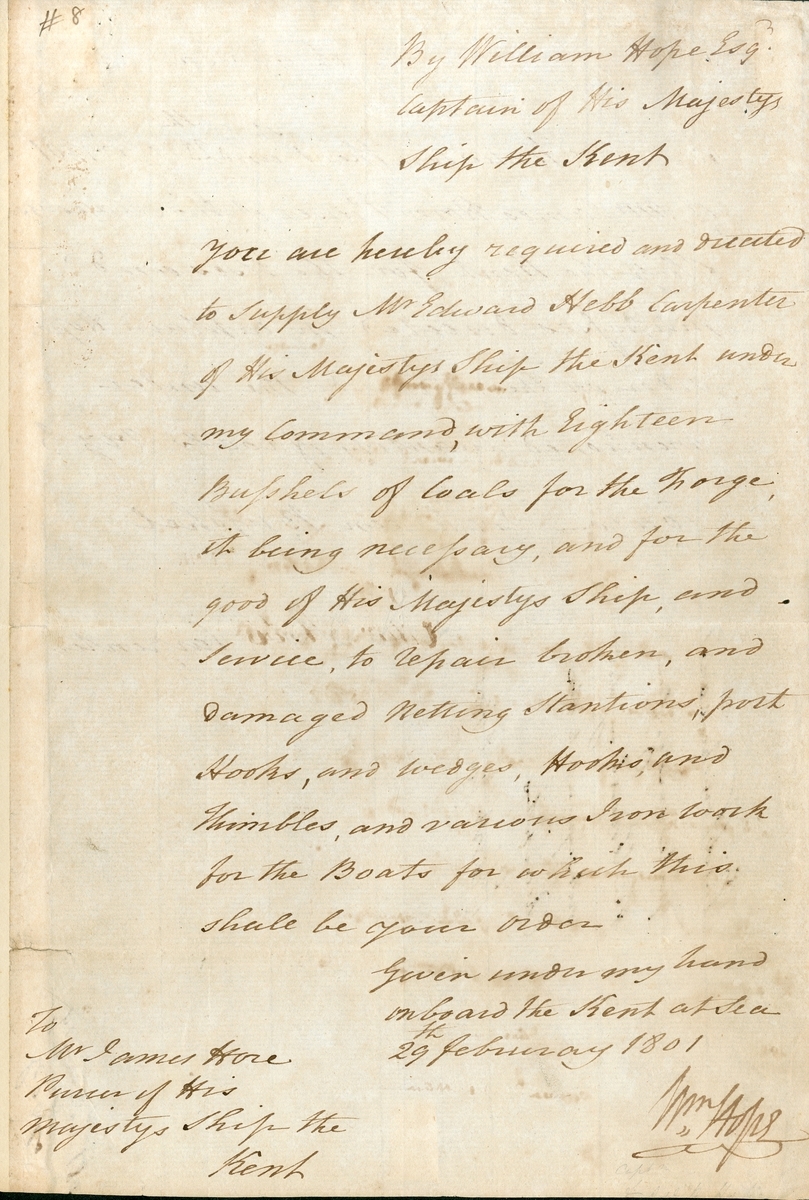 # 8
By William Hope Esqr.
Captain of His Majestys
Ship the Kent
You are hereby required and directed
to Supply Mr Edward Hebb Carpenter
of His Majestys Ship the Kent under
my Command, with Eighteen
Bushels of Coals for the Forge,
it being necessary, and for the
good of His Majestys Ship, and
Service, to repair broken, and
damaged Netting Stantions, port
Hooks, and wedges, Hooks, and
Thimbles, and various Iron work
for the Boats for which this
shall be your order
Given under my hand
onboard the Kent at Sea
29th Februray 1801
Wm Hope
To
Mr James Hore
Purser of His
Majestys Ship the
Kent